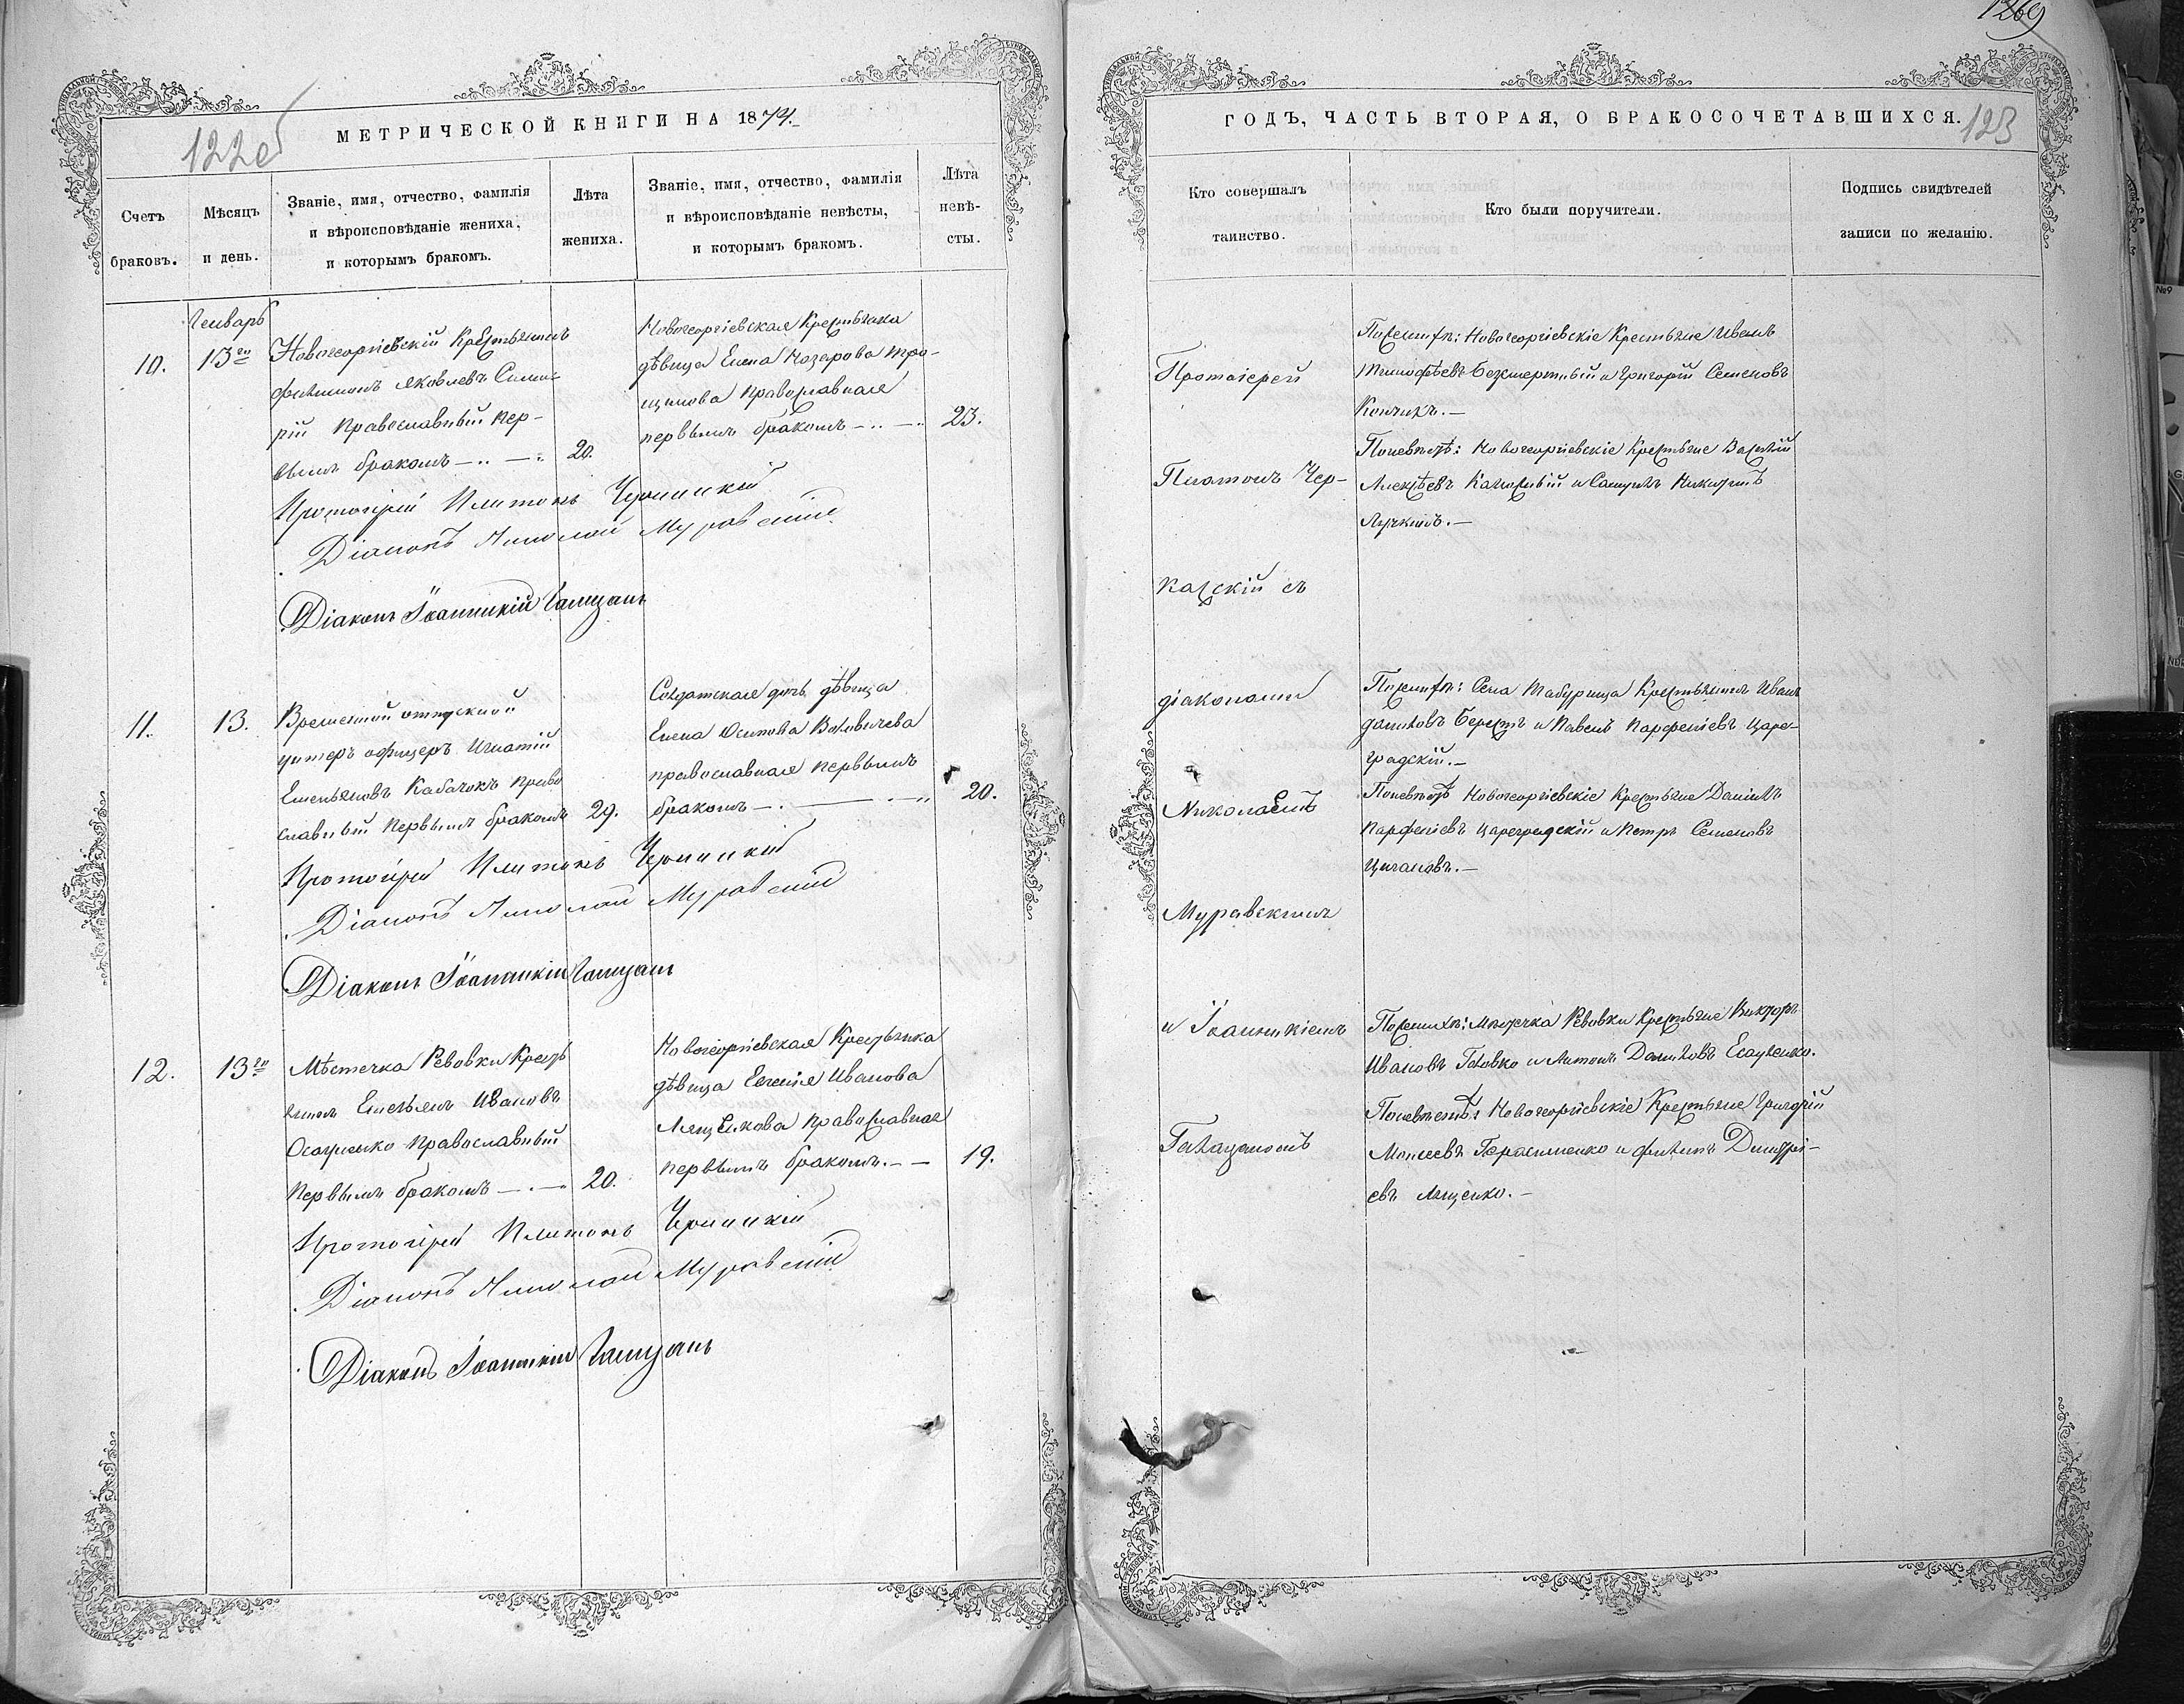 МЕТРИЧЕСКОЙ КНИГИ НА 1874
122об
Счетъ
браковъ.
Мѣсяцъ
и день.
Званіе, имя, отчество, фамилія
и вѣроисповѣданіе жениха,
и которымъ бракомъ.
Лѣта
жениха.
Званіе, имя, отчество, фамилія
и вѣроисповѣданіе невѣсты,
и которымъ бракомъ.
Лѣта
невѣ-
сты.
10.
Генварь
13го
Новогеоргіевскій Крестьянинъ
Филимонъ Яковлевъ
Православный пер-
вымъ бракомъ
20.
Новогеоргіевская Крестьянка
дѣвица Елена Назарова
Православная
первымъ бракомъ
23.
Протоіерей Платонъ
Діаконъ Николай Муравскій
Діаконъ Іоанникій
11.
13.
Временной отпускной
унтеръ офицеръ Игнатій
Емельяновъ Кабачокъ право
славный первымъ бракомъ
29.
Солдатская дочь дѣвица
Елена Осипова
православная первымъ
бракомъ
20.
Протоіерей Платонъ
Діаконъ Николай Муравскій
Діаконъ Іоанникій
12.
13го
Мѣстечка Ревовки Кресть
янинъ Емельянъ Ивановъ
Осауленко православный
первымъ бракомъ
20.
Новогеоргіевская Крестьянка
дѣвица Евгенія Иванова
Лященкова православная
первымъ бракомъ.
19.
Протоіерей Платонъ
Діаконъ Николай Муравскій
Діаконъ Іоанникій
1269
ГОДЪ, ЧАСТЬ ВТОРАЯ, О БРАКОСОЧЕТАВШИХСЯ.
123
Кто совершалъ
таинство.
Кто были поручители.
Подпись свидѣтелей
записи по желанію.
Протоіерей
Платонъ Чер-
касскій съ
діаконами
Николаемъ
Муравскимъ
и Іоанникіемъ
По женихѣ: Новогеоргіевскіе Крестьяне Иванъ
Тимофѣевъ Безсмертный и Григорій Семеновъ
По невѣстѣ: Новогеоргіевскіе Крестьяне Василій
Алексѣевъ и Самуилъ Никитинъ
По женихѣ: Села Табурища Крестьянинъ Иванъ
Даниловъ Берестъ и Павелъ Парфеніевъ Царе-
градскій.
По невѣстѣ Новогеоргіевскіе Крестьяне Даніилъ
Парфеніевъ Цареградскій и Петръ Семеновъ
Цигановъ.
По женихѣ: Мѣстечка Ревовки Крестьяне Викторъ
Ивановъ Головко и Антонъ Даниловъ Есауленко.
По невѣстѣ: Новогеоргіевскіе Крестьяне Григорій
Моисеевъ Герасименко и Филипъ Димитрі-
евъ Лященко.